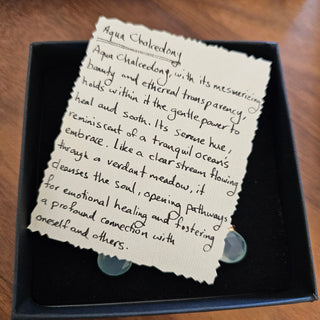 Aqua Chalcedony
Aqua Chalcedony, with its mesmerizing
beauty and ethereal transparency,
holds within it the gentle power to
heal and sooth. Its serene hue,
reminiscent of a tranquil ocean's
embrace. Like a clear stream flowing
through a verdant meadow, it
cleanses the soul, opening pathways
for emotional healing and fostering
a profound connection with
oneself and others.